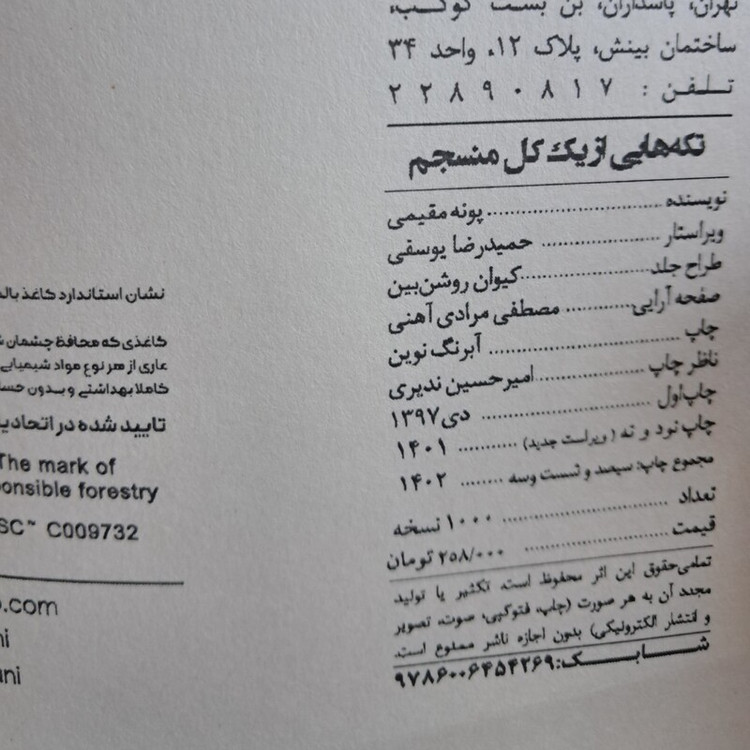 تهران، پاسداران، بن بست کوکب،
ساختمان بینش، پلاک ۱۲، واحد ۳۴
تلفن : ۲۲۸۹۰۸۱۷
تکه‌هایی از یک کل منسجم
نویسنده ........ پونه مقیمی
ویراستار ........ حمیدرضا یوسفی
طراح جلد ........ کیوان روشن‌بین
صفحه آرایی ........ مصطفی مرادی آهنی
چاپ ........ آبرنگ نوین
ناظر چاپ ........ امیرحسین ندیری
چاپ اول ........ دی ۱۳۹۷
چاپ نود و نه (ویراست جدید) ........ ۱۴۰۱
مجموع چاپ: سیصد و شصت و سه ........ ۱۴۰۲
تعداد ........ ۱۰۰۰ نسخه
قیمت ........ ۲۵۸/۰۰۰ تومان
تمامی حقوق این اثر محفوظ است. تکثیر یا تولید
مجدد آن به هر صورت (چاپ، فتوکپی، صوت، تصویر
و انتشار الکترونیکی) بدون اجازه ناشر ممنوع است.
شابک: ۹۷۸۶۰۰۶۴۵۴۲۶۹
نشان استاندارد کاغذ
کاغذی که محافظ چشمان
عاری از هر نوع مواد شیمیایی
کاملا بهداشتی و بدون
تایید شده در
The mark of
onsible forestry
SC™ C009732
.com
ni
uni